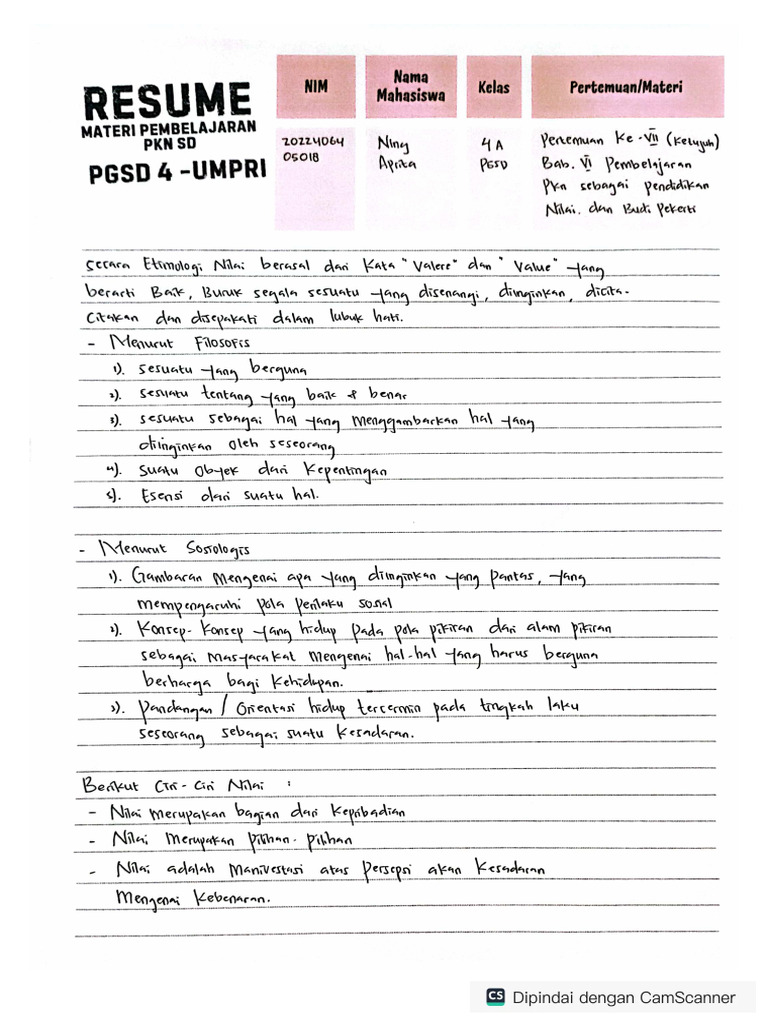 RESUME
MATERI PEMBELAJARAN
PKN SD
PGSD 4 -UMPRI
NIM
Nama
Mahasiswa
Kelas
Pertemuan/Materi
20224064
05018
Niny
Aprita
4 A
PGSD
Pertemuan Ke -VII (Ketujuh)
Bab. VI Pembelajaran
Pkn sebagai pendidikan
Nilai. dan Budi Pekerti
Secara Etimologi Nilai berasal dari Kata "Valere" dan "Value" yang
berarti Baik, Buruk segala sesuatu yang disenangi, diinginkan, dicita-
Citakan dan disepakati dalam lubuk hati.
- Menurut Filosofis
1). sesuatu yang berguna
2). sesuatu tentang yang baik & benar
3). sesuatu sebagai hal yang menggambarkan hal yang
diinginkan oleh seseorang
4). Suatu Objek dari Kepentingan
5). Esensi dari suatu hal.
- Menurut Sosiologis
1). Gambaran Mengenai apa yang diinginkan yang pantas, yang
mempengaruhi pola perilaku sosial
2). Konsep-Konsep yang hidup pada pola pikiran dari alam pikiran
sebagai Masyarakat mengenai hal-hal yang harus berguna
berharga bagi Kehidupan.
3). Pandangan / Orientasi hidup tercermin pada tingkah laku
seseorang sebagai suatu Kesadaran.
Berikut Ciri-Ciri Nilai :
- Nilai merupakan bagian dari Kepribadian
- Nilai merupakan pilihan-pilihan
- Nilai adalah Manivestasi atas Persepsi akan Kesadaran
Mengenai Kebenaran.
CS Dipindai dengan CamScanner